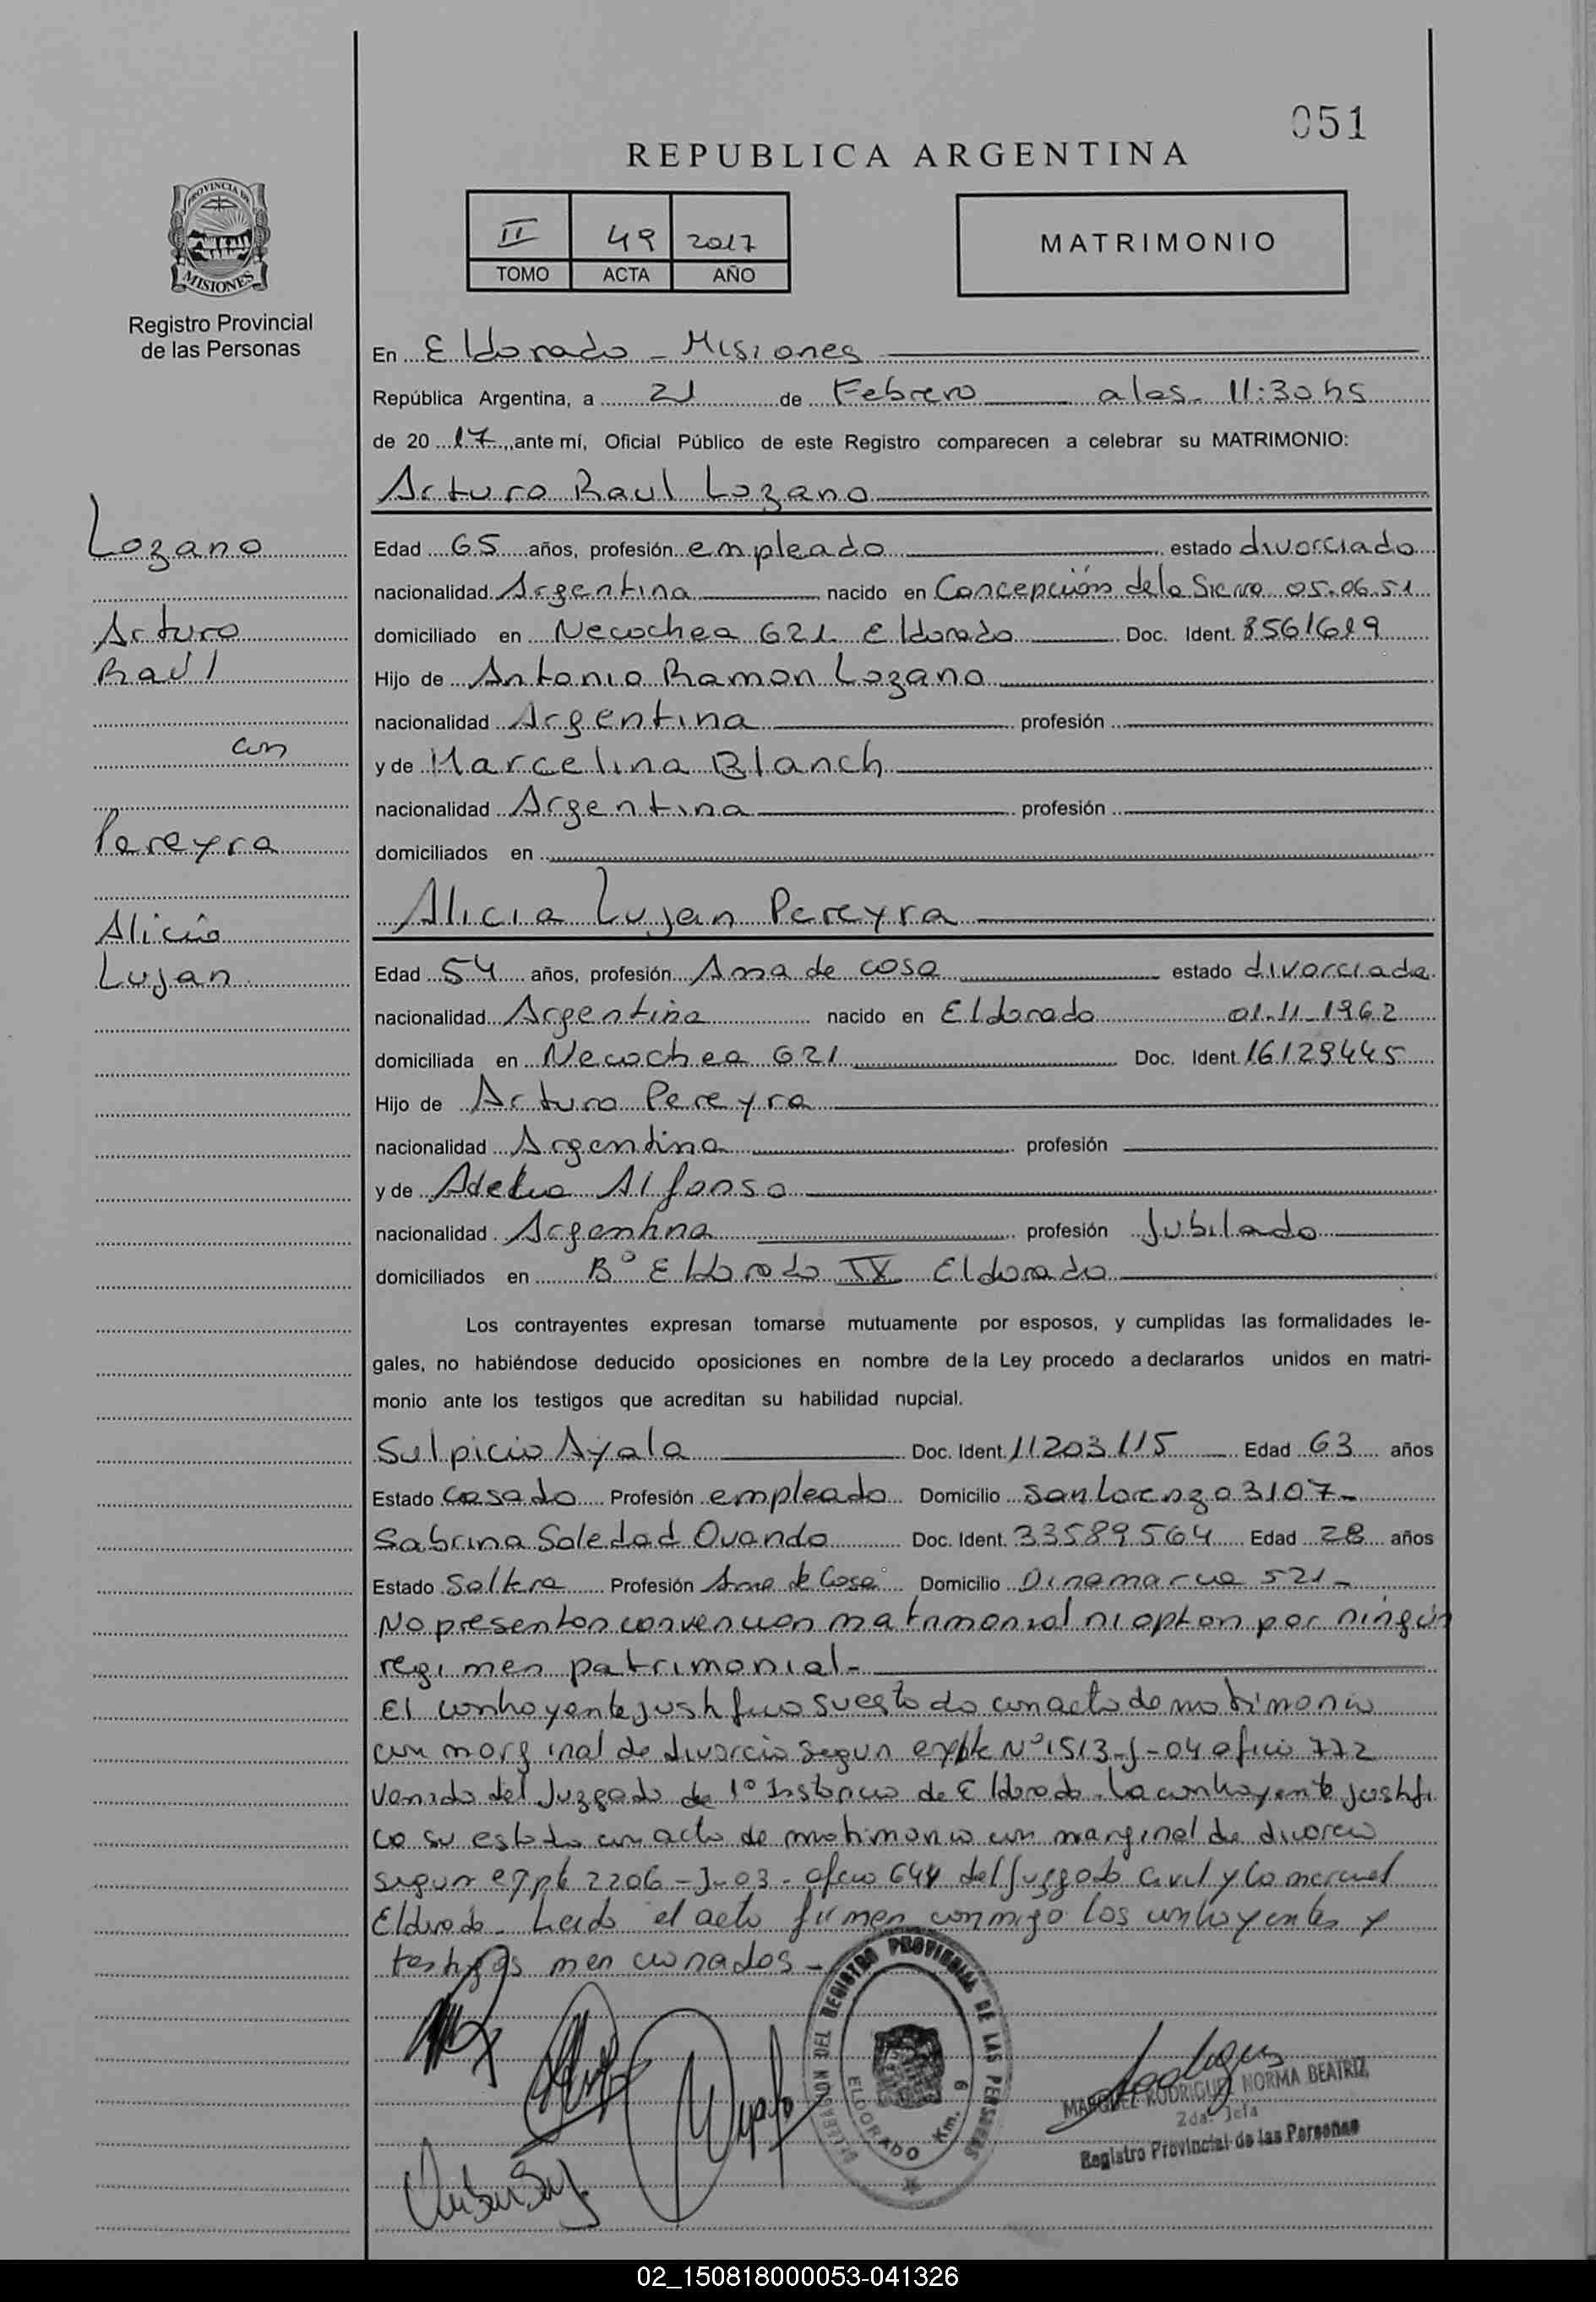 051
REPUBLICA ARGENTINA
II 49 2017
TOMO ACTA AÑO
MATRIMONIO
PROVINCIA DE
MISIONES
Registro Provincial
de las Personas
En Eldorado - Misiones
República Argentina, a 21 de Febrero a las 11:30 hs
de 20 17, ante mí, Oficial Público de este Registro comparecen a celebrar su MATRIMONIO:
Arturo Raul Lozano
Lozano
Arturo
Raúl
con
Pereyra
Alicia
Lujan
Edad 65 años, profesión empleado estado divorciado
nacionalidad Argentina nacido en Concepción de la Sierra 05.06.51
domiciliado en Necochea 621 Eldorado Doc. Ident. 8561619
Hijo de Antonio Ramon Lozano
nacionalidad Argentina profesión
y de Marcelina Blanch
nacionalidad Argentina profesión
domiciliados en
Alicia Lujan Pereyra
Edad 54 años, profesión Ama de casa estado divorciada
nacionalidad Argentina nacido en Eldorado 01.11.1962
domiciliada en Necochea 621 Doc. Ident. 16129445
Hijo de Arturo Pereyra
nacionalidad Argentina profesión
y de Adelia Alfonso
nacionalidad Argentina profesión Jubilado
domiciliados en B° Eldorado IX Eldorado
Los contrayentes expresan tomarse mutuamente por esposos, y cumplidas las formalidades le-
gales, no habiéndose deducido oposiciones en nombre de la Ley procedo a declararlos unidos en matri-
monio ante los testigos que acreditan su habilidad nupcial.
Sulpicio Ayala Doc. Ident. 11203115 Edad 63 años
Estado Casado Profesión empleado Domicilio San Lorenzo 3107-
Sabrina Soledad Ovando Doc. Ident. 33589564 Edad 28 años
Estado Soltera Profesión Ama de Casa Domicilio Dinamarca 521-
No presentan convencion matrimonial ni optan por ningún
regimen patrimonial-
El contrayente justifica su estado con acta de matrimonio
con marginal de divorcio segun expte N° 1513-J-04 oficio 772
Venido del Juzgado de 1° Instancia de Eldorado. La contrayente justifi
ca su estado con acta de matrimonio con marginal de divorcio
segun expte 2206-J-03- oficio 644 del Juzgado Civil y Comercial
Eldorado. Leido el acta firman conmigo los contrayentes y
testigos mencionados-
DELEGACION DEL REGISTRO PROVINCIAL DE LAS PERSONAS
ELDORADO Km. 6
RODRIGUEZ NORMA BEATRIZ
2da. Jefa
Registro Provincial de las Personas
02_150818000053-041326